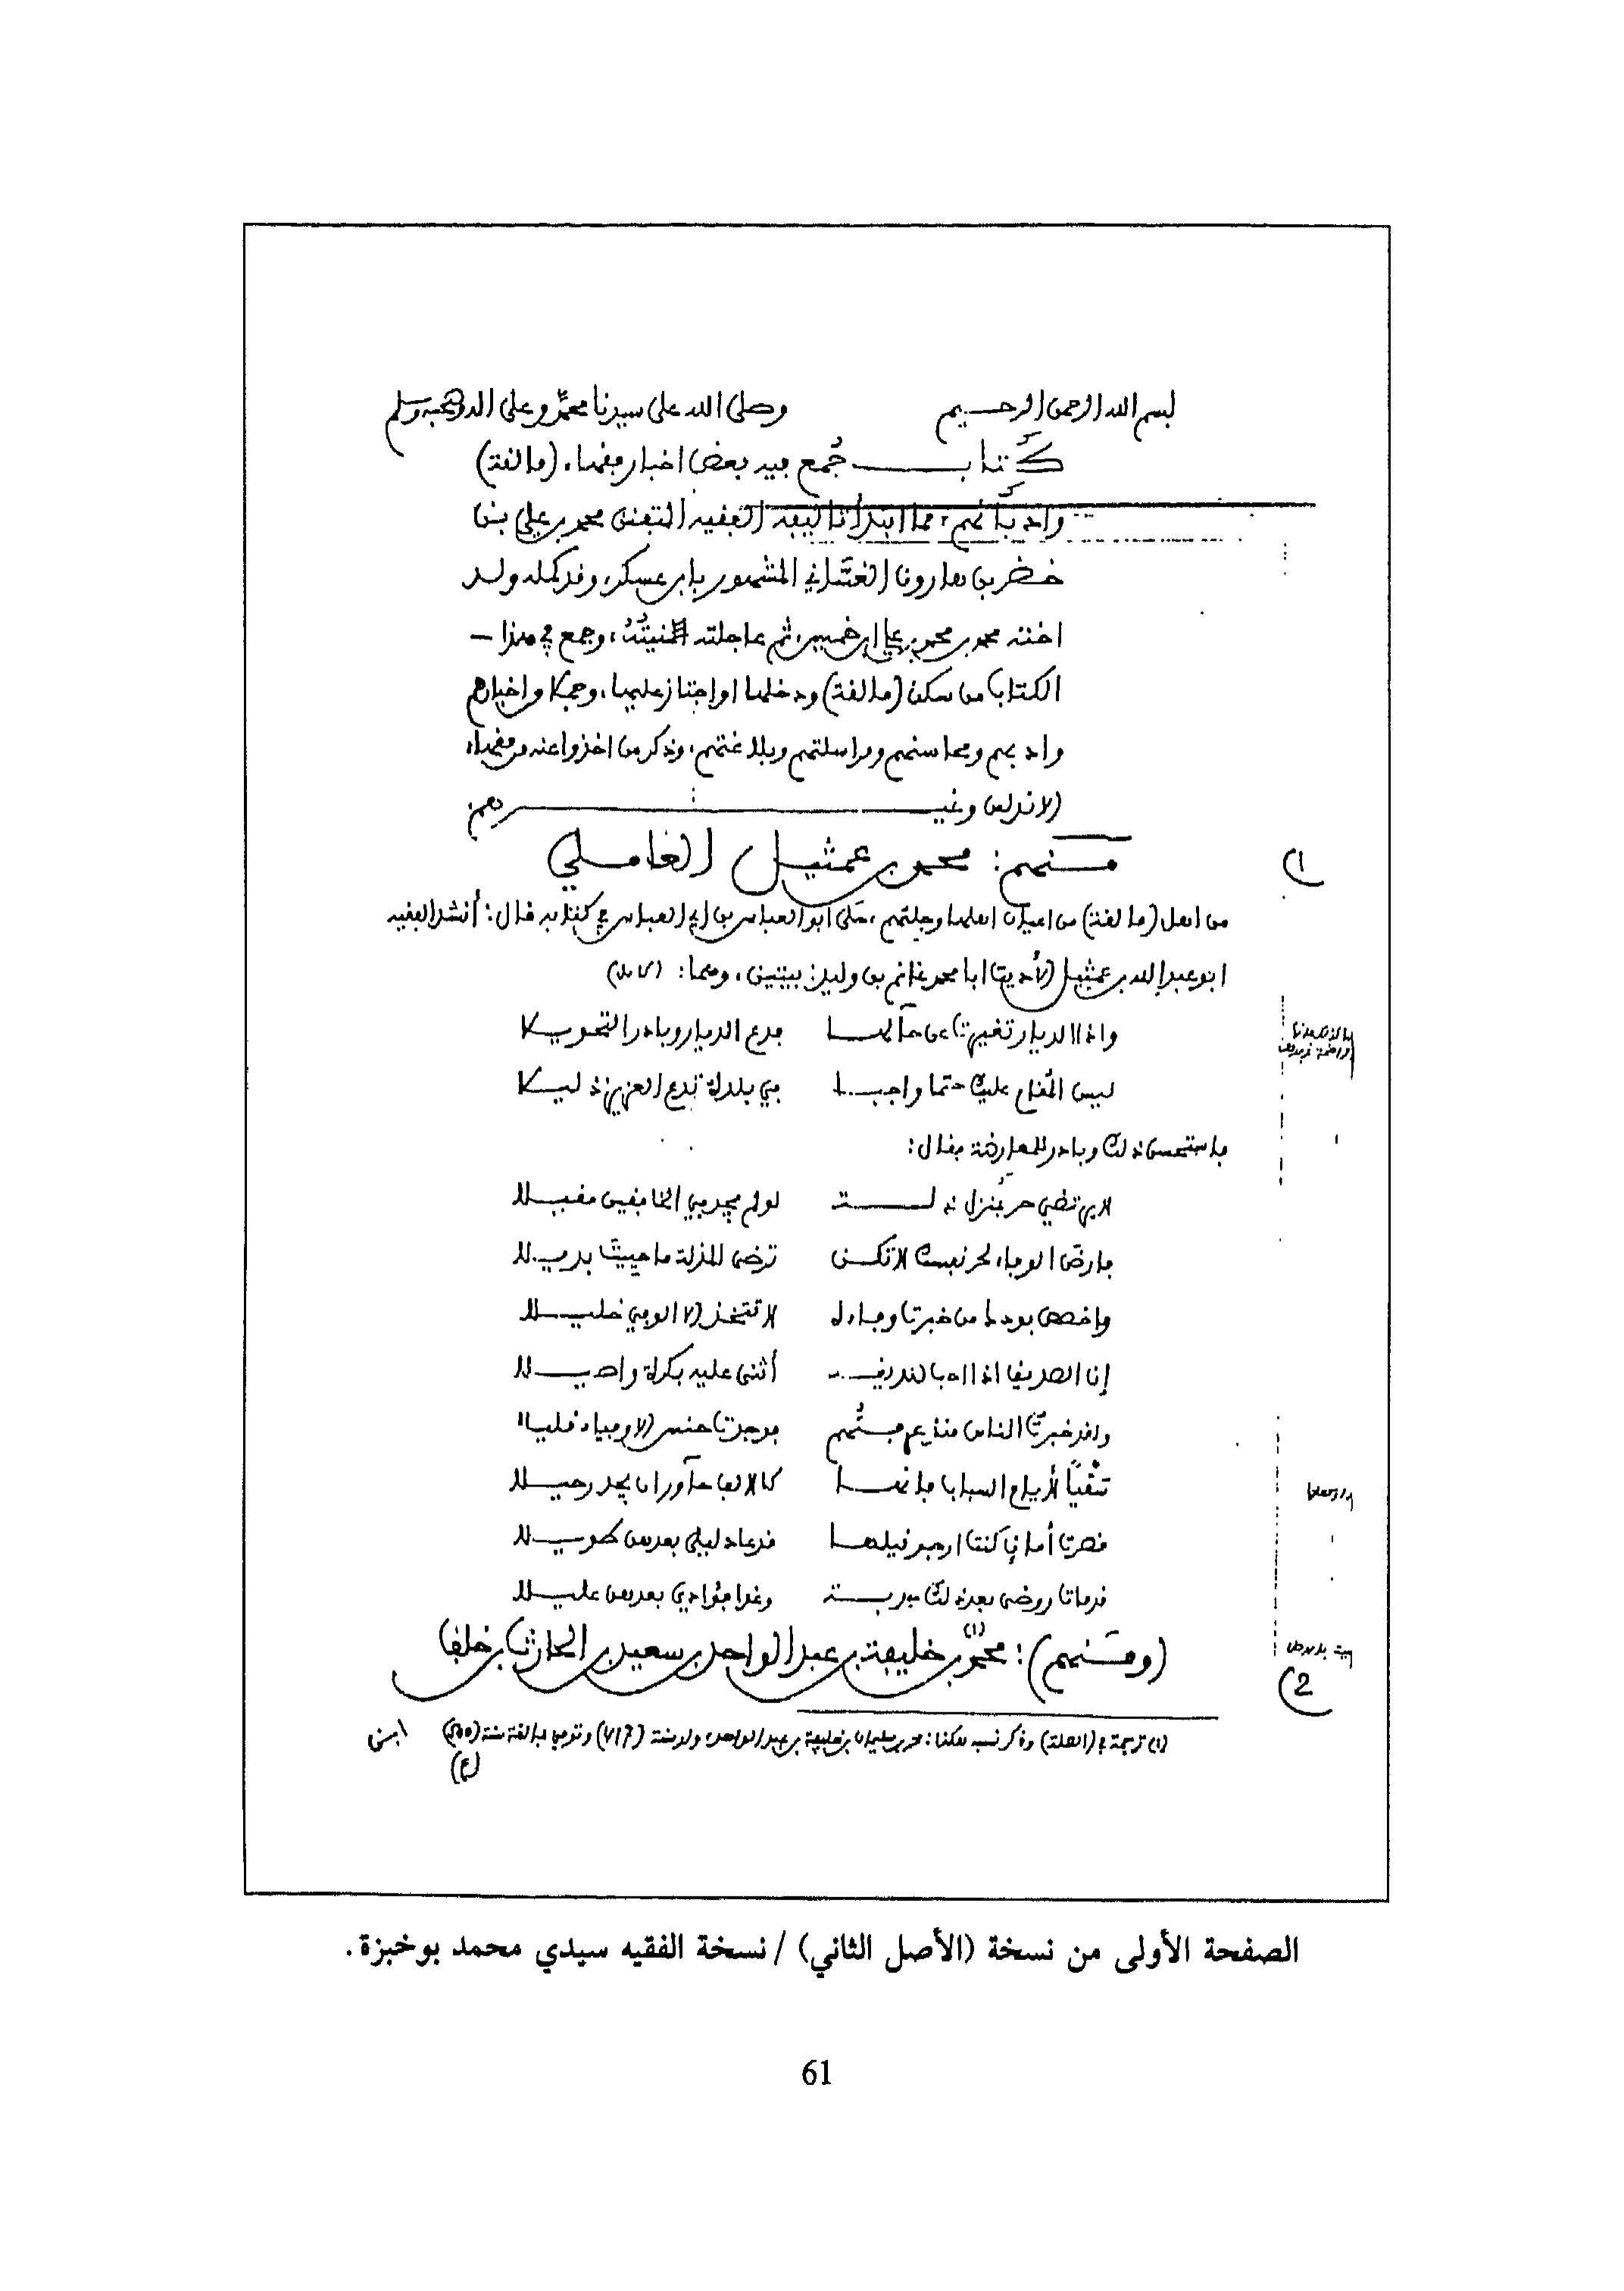 بسم الله الرحمن الرحيم وصلى الله على سيدنا محمد وعلى آله وصحبه وسلم
كتاب جُمع فيه بعض اخبار فقهاء (مالقة)
وأدبائهم، مما ابتدأ تأليفه الفقيه المتفنن محمد بن علي بن
خضر بن هارون الغسَّاني المشهور بابن عسكر، وقد كمله ولد
اخته محمد بن محمد بن علي ابن خميس، ثم عاجلته المنيَّة، وجمع في هذا –
الكتاب من سكن (مالقة) ودخلها او اجتاز عليها، وحكا واخبارهم
وادبهم ومحاسنهم ومراسلتهم وبلاغتهم، وذكر من اخذوا عنه من فقهاء
الاندلس وغيرهم
1) منهم: محمد بن عمثيل العاملي
من اهل (مالقة) من اعيان اهلها وجلتهم، حكى ابو العباس بن ابي العباس في كتابه قال: أنشد الفقيه
ابو عبد الله بن عمثيل الأديب ابا محمد غانم بن وليد: بيتين، وهما: (كامل)
واذا الديار تغيرت عن حآلها فدع الديار وبادر التحويلا
ليس المُقام عليك حتما واجبا في بلدة تدع العزيز ذليلا
فاستحسن ذلك وبادر للمعارضة فقال:
لا يرتضي حر بمنزل ذلة لو لم يجد في الخافقين مقيلا
فارض الوفاء لحر نفسك لا تكن ترضى المذلة ما حييت بديلا
واخصص بودك من خبرت وفاءه لا تتخذ إلا الوفي خليلا
أثنى عليه بكرة واصيلا
ولقد خبرت الناس منذ عرفتهم فوجدت جنس الاوفياء قليلا
كالال
قصرت أماني كنت ارجو نيلها قد عاد ليلي بعدهن طويلا
قد مات روضي بعد ذلك وغدا فؤادي بعدهن عليلا
2) (ومنهم): محمد بن خليفة(1) بن عبد الواحد بن سعيد بن الحارث بن خلف
(1) ترجمة في (الصلة) وذكر نسبه هكذا: محمد بن سليمان بن خليفة بن عبد الواحد، ولد سنة (417) وتوفي بمالقة سنة (500) ابن
(ع)
الصفحة الأولى من نسخة (الأصل الثاني) / نسخة الفقيه سيدي محمد بوخبزة.
61